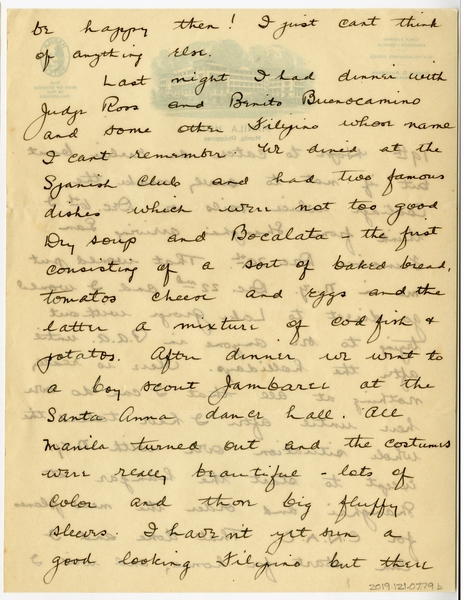 be happy then! I just cant think
of anything else.
Last night I had dinner with
Judge Ross and Benito Buenocamino
and some other Filipino whose name
I cant remember. We dined at the
Spanish Club and had two famous
dishes which were not too good
Dry soup and Bocalata - the first
consisting of a sort of baked bread,
tomatos cheese and eggs and the
latter a mixture of cod fish &
potatos. After dinner we went to
a boy scout Jambaree at the
Santa Anna dance hall. All
Manila turned out and the costumes
were really beautiful - lots of
color and those big fluffy
sleeves. I haven't yet seen a
good looking Filipino but there
2019-121-0779b